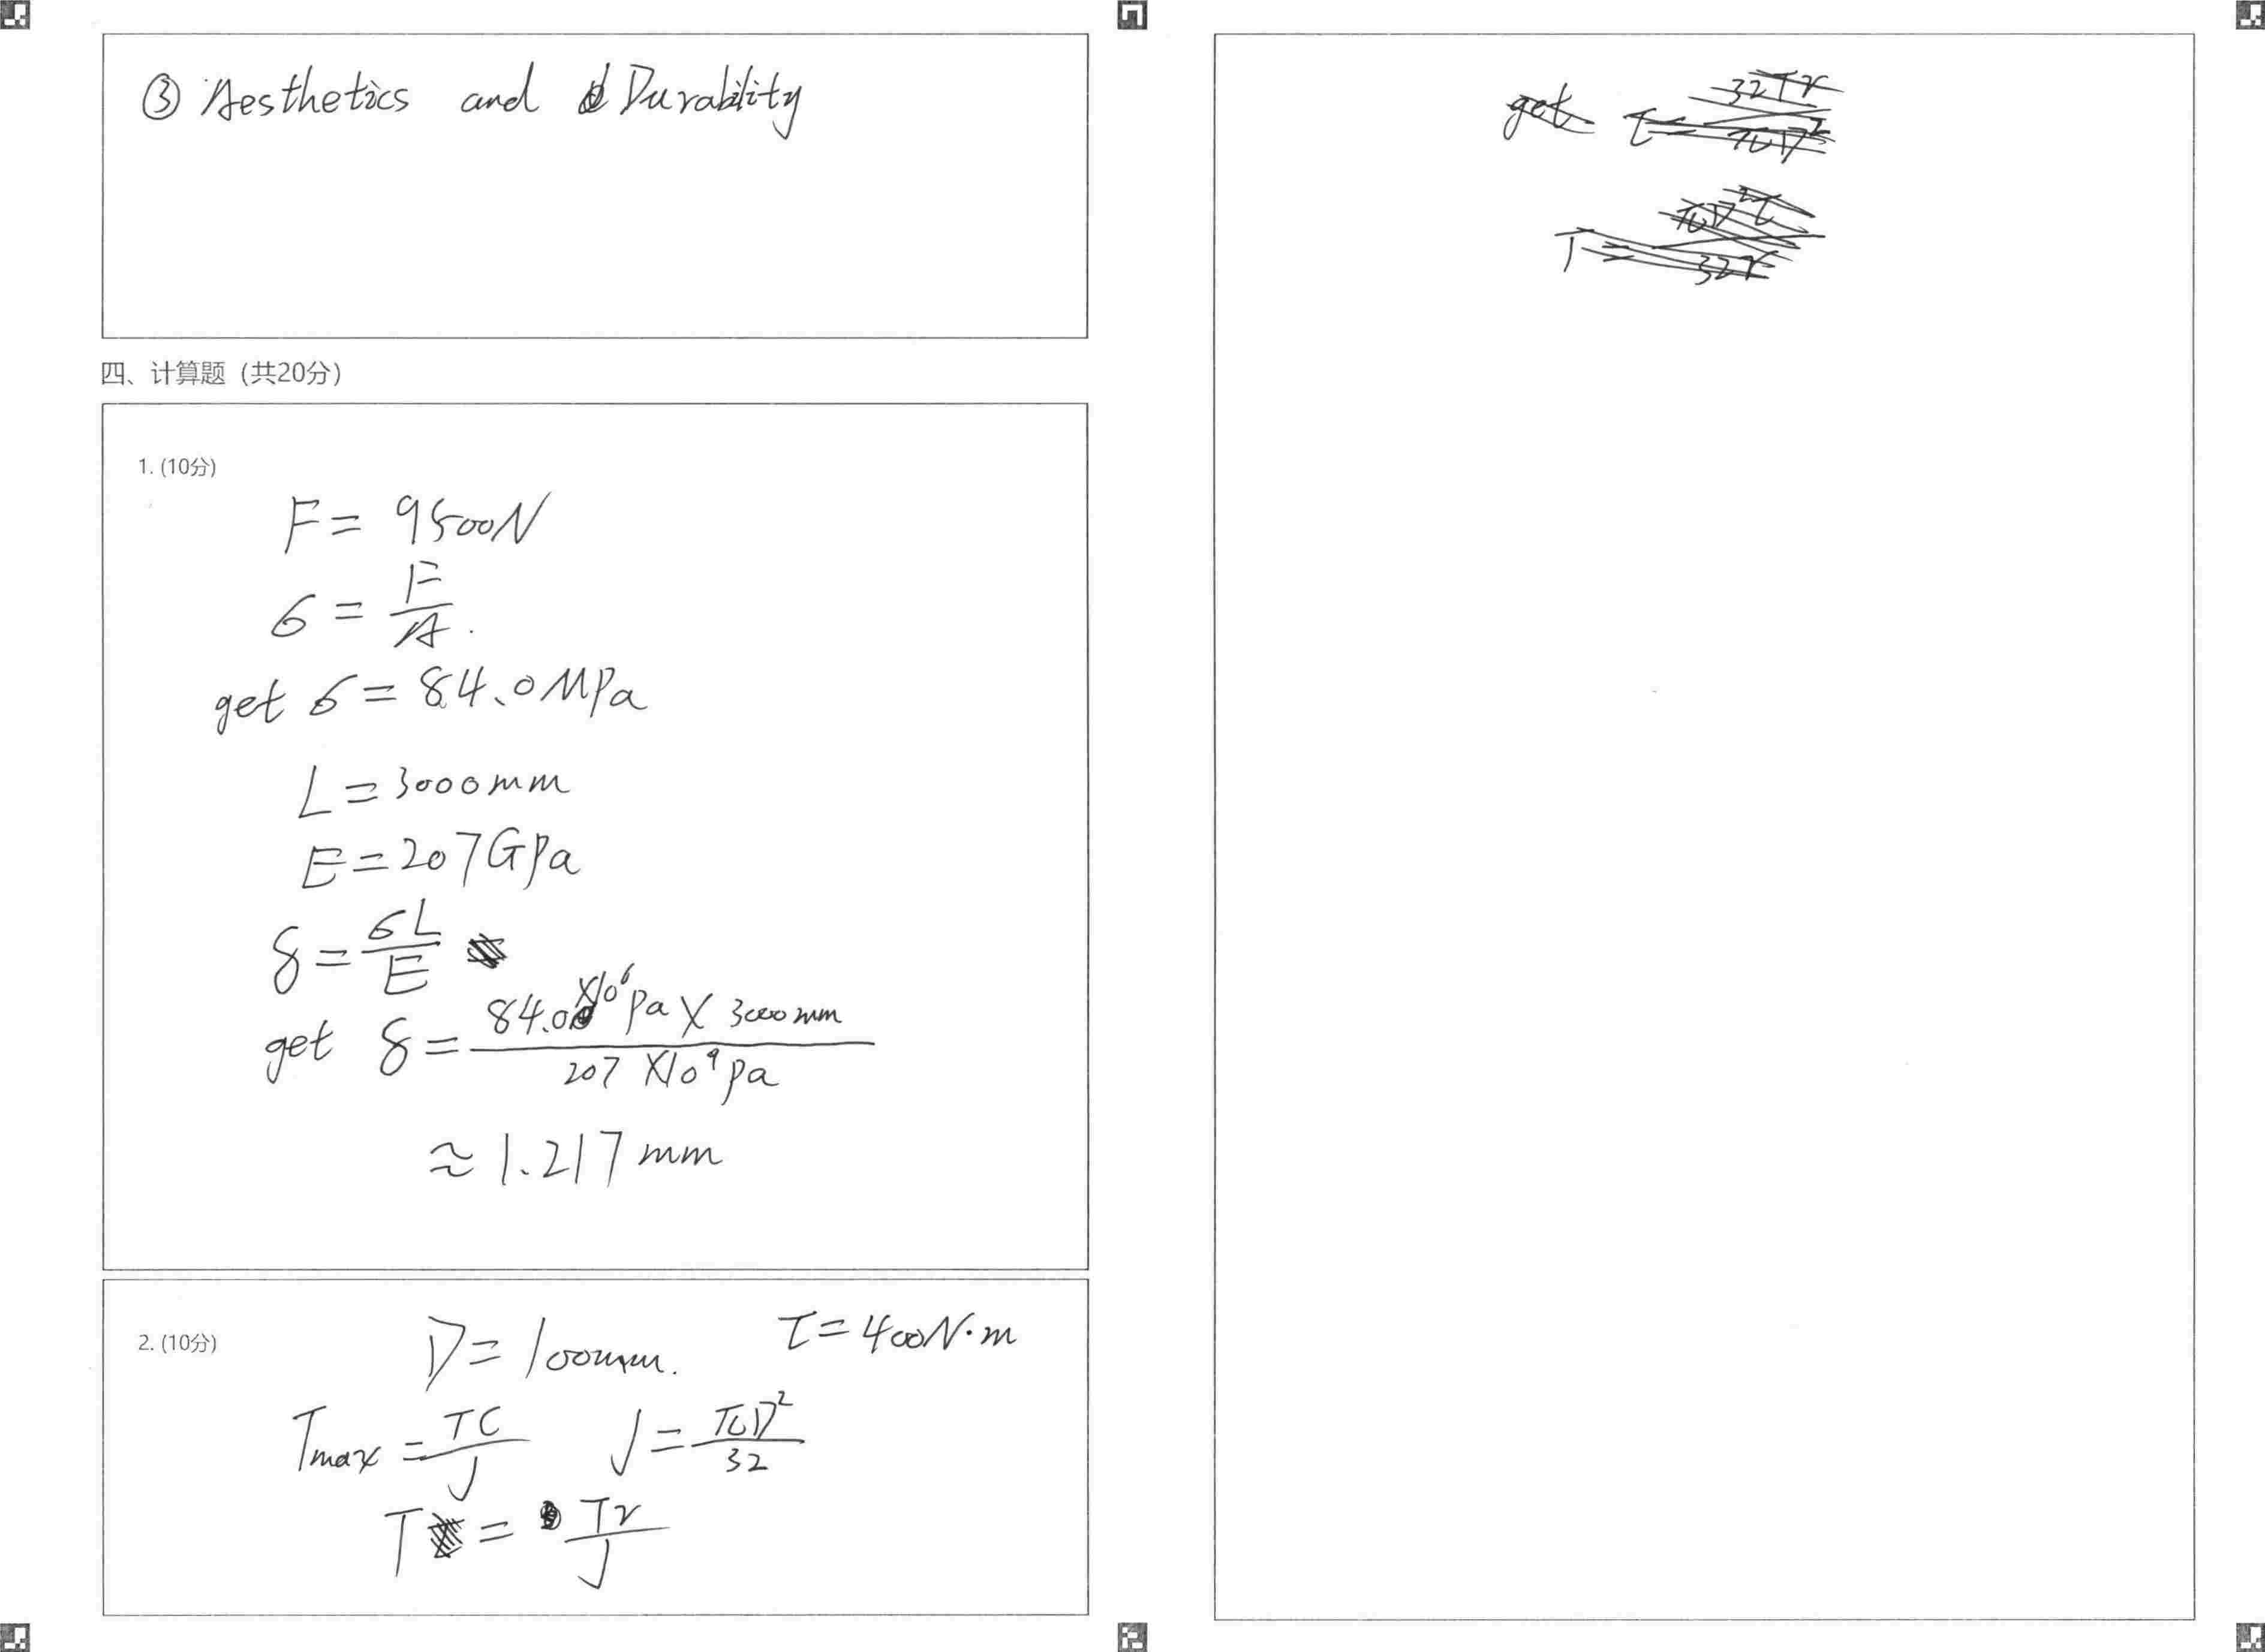 ③ Aesthetics and Durability
四、计算题（共20分）
1. (10分)
F = 9500N
σ = F/A.
get σ = 84.0MPa
L = 3000mm
E = 207GPa
δ = σL/E
get δ = 84.0×10⁶Pa × 3000mm / 207×10⁹Pa
≈ 1.217mm
2. (10分)
D = 100mm. τ = 400N·m
Tmax = TC/J J = πD²/32
T = Tr/J
get τ = 32Tr/πD²
T = πD²τ/32r